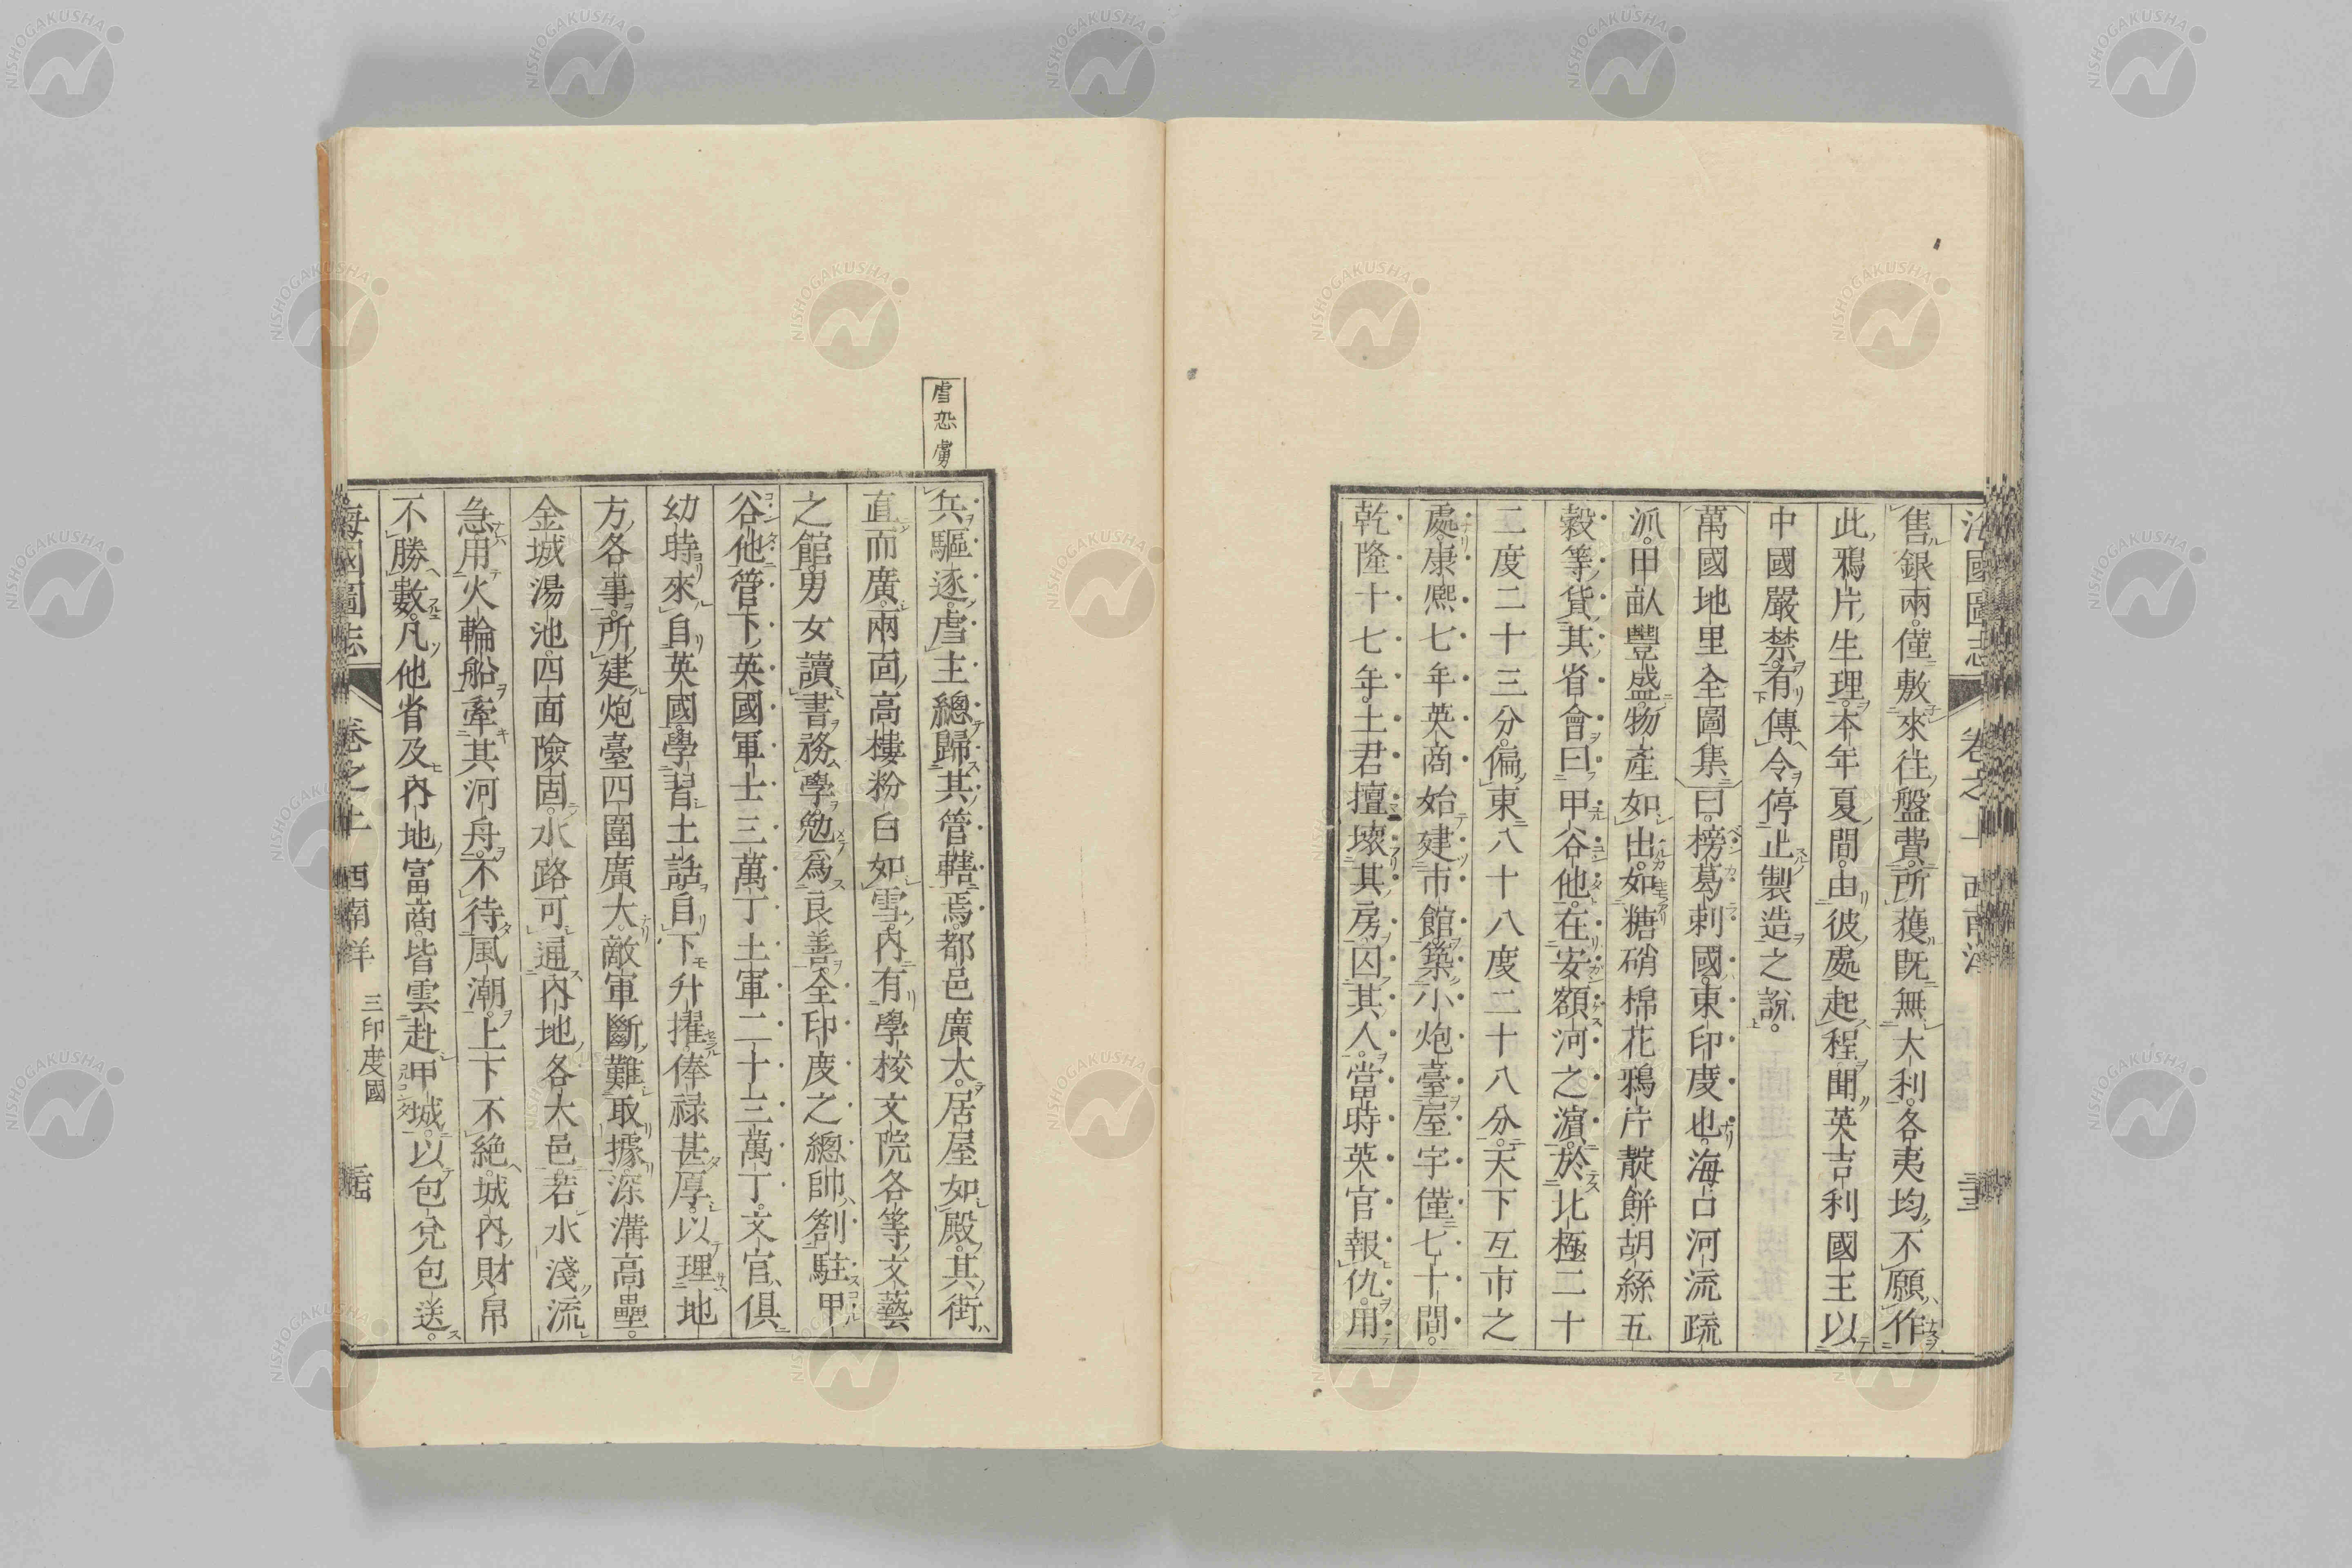 海國圖志 卷之上 西南洋
售銀兩。僅敷來往盤費。所獲既無大利。各夷均不願作
此鴉片生理。本年夏間。由彼處起程。聞英吉利國王以
中國嚴禁。有傳令停止製造之說。
萬國地里全圖集曰。榜葛剌國。東印度也。海口河流疏
派。甲畝豐盛。物產如出。如糖硝棉花鴉片靛餅胡絲五
穀等貨。其省會曰甲谷他。在安額河之濵。於北極二十
二度二十三分。偏東八十八度二十八分。天下互市之
處。康熙七年英商始建市館。築小炮臺。屋宇僅七十間。
乾隆十七年。土君擅壞其房。囚其人。當時英官報仇。用
虐恐虜
兵驅逐。虐主總歸其管轄焉。都邑廣大。居屋如殿。其街
直而廣。兩面高樓粉白如雪。內有學校文院各等文藝
之館。男女讀書務學。勉為良善。全印度之總帥。劄駐甲
谷他管下。英國軍士三萬丁。土軍二十三萬丁。文官俱
幼時來自英國。學習土話。自下升擢。俸祿甚厚。以理地
方各事。所建炮臺四圍廣大。敵軍斷難取據。深溝高壘。
金城湯池。四面險固。水路可通內地各大邑。若水淺流
急。用火輪船牽其河舟。不待風潮。上下不絕。城內財帛
不勝數。凡他省及內地富商。皆雲赴甲城。以包兌包送。
海國圖志 卷之上 西南洋 三印度國
NISHOGAKUSHA